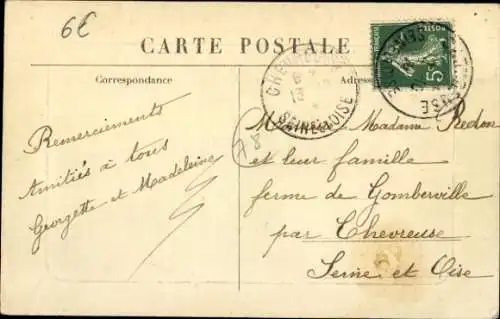 6€
CARTE POSTALE
Correspondance
CHEVREUSE
SEINE-ET-OISE
5c
78
Remerciements
Amitiés à tous
Georgette et Madeleine
Madame Redon
et leur famille
ferme de Gomberville
par Chevreuse
Seine et Oise